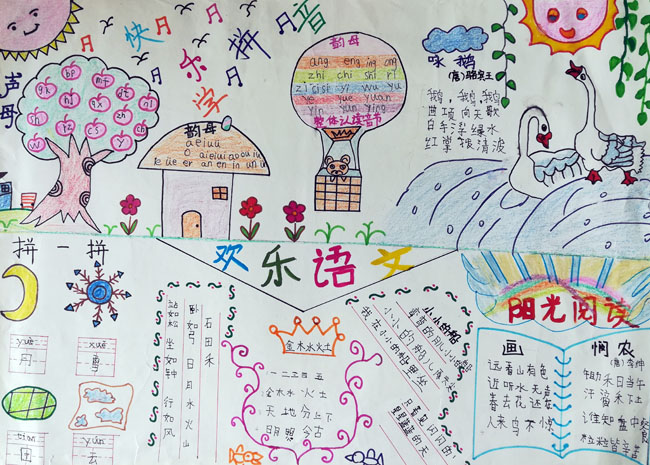 快乐拼音
声母
学
韵母
ang eng ing ong
zhi chi shi ri
zi ci si yi wu yu
ye yue yuan
yin yun ying
整体认读音节
韵母
a e i u ü
o ai ei ui ao ou iu
ie üe er an en in un ün
咏鹅
(唐)骆宾王
鹅,鹅,鹅
曲项向天歌
白毛浮绿水
红掌拨清波
欢乐语文
拼一拼
yuè
月
xuě
tián
田
yún
云
站如松 坐如钟 行如风
卧如弓 日月水火山
石田禾
金木水火土
一二三四五
金木水火土
天地分上下
日月照今古
小小的船
弯弯的月儿小小的船
小小的船儿两头尖
我在小小的船里坐
只看见闪闪的
星星蓝蓝的天
阳光阅读
画
远看山有色
近听水无声
春去花还在
人来鸟不惊
悯农
(唐)李绅
锄禾日当午
汗滴禾下土
谁知盘中餐
粒粒皆辛苦